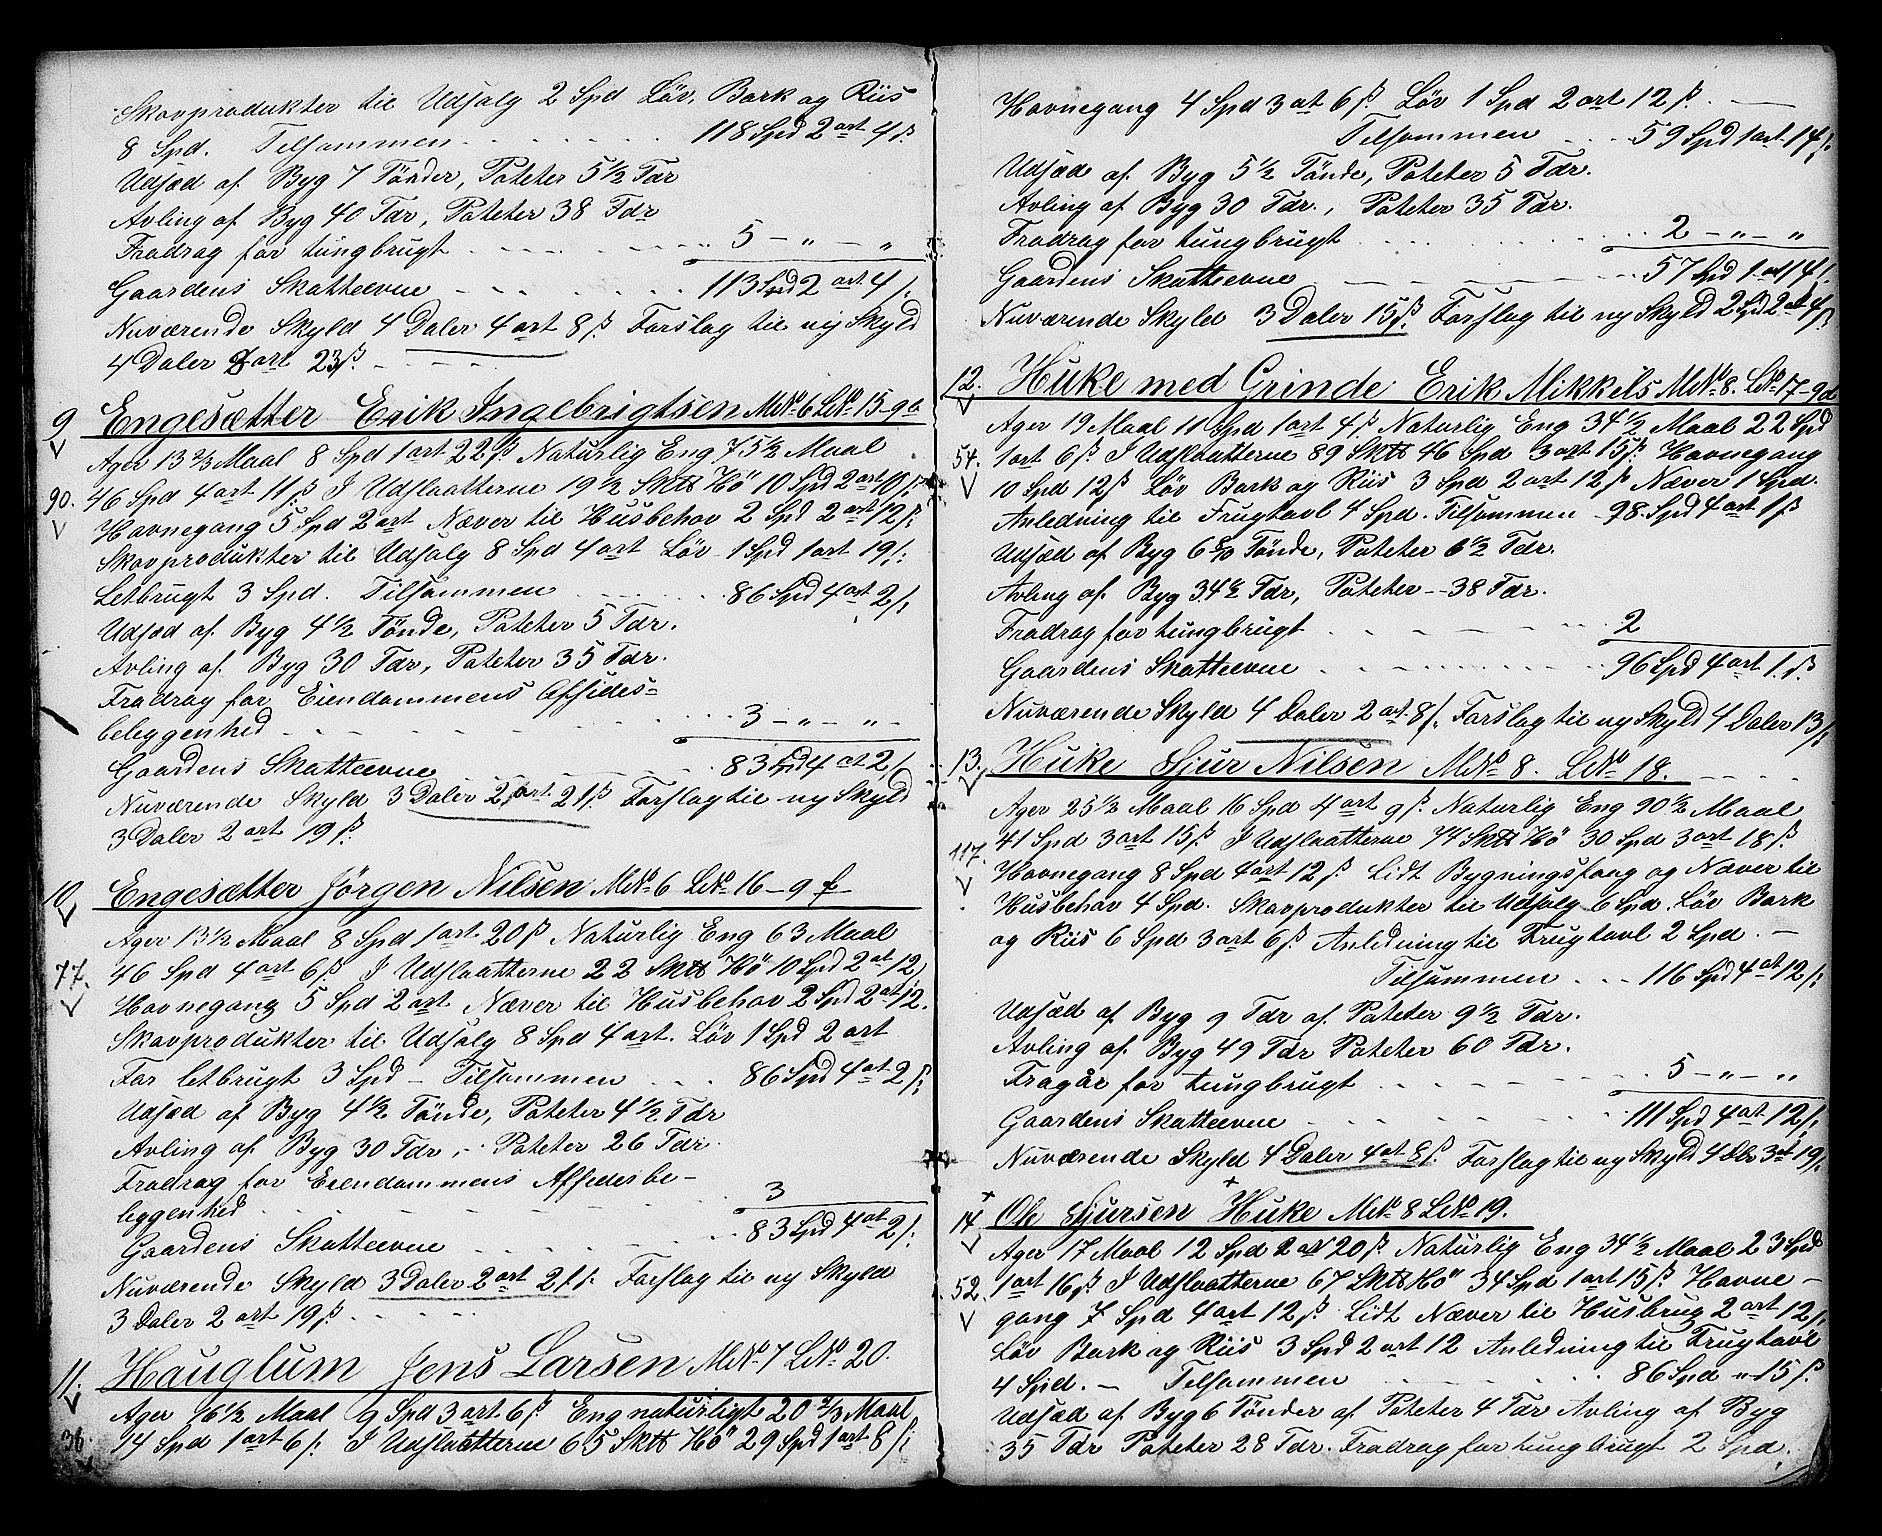 Skovprodukter til Udsalg 2 Spd Löv, Bark og Riis
8 Spd. Tilsammen . . . . . . . 118 Spd 2 ort 4 ß.
Udsæd af Byg 7 Tönder, Poteter 5 1/2 Tdr
Avling af Byg 40 Tdr, Poteter 38 Tdr
Fradrag for tungbrugt . . . . . . 5 – „ – „
Gaardens Skatteevne . . . . . 113 Spd 2 ort 4 ß.
Nuværende Skyld 4 Daler 4 ort 8 ß. Forslag til ny Skyld
4 Daler 2 ort 23 ß.
9 Engesætter Erik Ingebrigtsen MNo 6 LNo 15 – 9 e
Ager 13 2/3 Maal 8 Spd 1 ort 22 ß Naturlig Eng 75 1/2 Maal
90. 46 Spd 4 ort 11 ß I Udslaatterne 19 1/2 Sktt Hö 10 Spd 2 ort 10 ß.
Havnegang 5 Spd 2 ort Næver til Husbehov 2 Spd 2 ort 12 ß.
Skovprodukter til Udsalg 8 Spd 4 ort Löv 1 Spd 1 ort 19 ß.
Letbrugt 3 Spd. Tilsammen . . . . . . 86 Spd 4 ort 2 ß.
Udsæd af Byg 4 1/2 Tönde, Poteter 5 Tdr.
Avling af Byg 30 Tdr, Poteter 35 Tdr.
Fradrag for Eiendommens Afsides=
beleggenhed . . . . . . . 3 – „ – „ –
Gaardens Skatteevne . . . . . 83 Spd 4 ort 2 ß
Nuværende Skyld 3 Daler 2 ort 21 ß Forslag til ny Skyld
3 Daler 2 ort 19 ß.
10. Engesætter Jörgen Nilsen MNo 6 LNo 16 – 9 f
Ager 13 1/2 Maal 8 Spd 1 ort 20 ß Naturlig Eng 63 Maal
77. 46 Spd 4 ort 6 ß I Udslaatterne 22 Sktt Hö 10 Spd 2 ort 12
Havnegang 5 Spd 2 ort Næver til Husbehov 2 Spd 2 ort 12.
Skovprodukter til Udsalg 8 Spd 4 ort. Löv 1 Spd 2 ort
For letbrugt 3 Spd – Tilsammen . . . 86 Spd 4 ort 2 ß.
Udsæd af Byg 4 1/2 Tönde, Poteter 4 1/2 Tdr
Avling af Byg 30 Tdr, – Poteter 26 Tdr.
Fradrag for Eiendommens Afsidesbe–
leggenhed . . . . . . . 3
Gaardens Skatteevne . . . . . 83 Spd 4 ort 2 ß.
Nuværende Skyld 3 Daler 2 ort 21 ß. Forslag til ny Skyld
3 Daler 2 ort 19 ß.
11. Hauglum Jens Larsen MNo 7 LNo 20.
Ager 16 1/2 Maal 9 Spd 3 ort 6 ß Eng naturligt 20 2/3 Maal
36. 14 Spd 1 ort 6 ß. I Udslaatterne 65 Sktt Hö 29 Spd 1 ort 8 ß.
Havnegang 4 Spd 3 ort 6 ß Löv 1 Spd 2 ort 12 ß. –
Tilsammen . . . 59 Spd 1 ort 14 ß.
Udsæd af Byg 5 1/2 Tönde, Poteter 5 Tdr.
Avling af Byg 30 Tdr., Poteter 35 Tdr.
Fradrag for tungbrugt . . . . . . 2 – „ – „
Gaardens Skatteevne . . . . . 57 Spd 1 ort 14 ß.
Nuværende Skyld 3 Daler 15 ß. Forslag til ny Skyld 2 Spd 2 ort 4 ß
12. Huke med Grinde Erik Mikkels MNo 8. LNo 17 – 9 d
Ager 19 Maal 11 Spd 1 ort 4 ß Naturlig Eng 34 1/2 Maal 22 Spd
54. 1 ort 6 ß I Udslaatterne 89 Sktt 46 Spd 3 ort 15 ß. Havnegang
10 Spd 12 ß Löv Bark og Riis 3 Spd 2 ort 12 ß Næver 1 Spd.
Anledning til Frugtavl 4 Spd. Tilsammen 98 Spd 4 ort 1 ß
Udsæd af Byg Tönde, Poteter 6 1/2 Tdr.
Avling af Byg 34 1/2 Tdr, Poteter -- 38 Tdr.
Fradrag for tungbrugt . . . . . 2
Gaardens Skatteevne . . . . . . 96 Spd 4 ort 1 ß.
Nuværende Skyld 4 Daler 2 ort 8 ß. Forslag til ny Skyld 4 Daler 13 ß
13. Huke Sjur Nilsen MNo 8. LNo 18.
Ager 25 1/2 Maal 16 Spd 4 ort 9 ß. Naturlig Eng 90 1/2 Maal
117. 41 Spd 3 ort 15 ß I Udslaatterne 74 Sktt Hö 30 Spd 3 ort 18 ß.
Havnegang 8 Spd 4 ort 12 ß. Lidt Bygningsfang og Næver til
Husbehov 4 Spd. Skovprodukter til Udsalg 6 Spd. Löv Bark
og Riis 6 Spd 3 ort 6 ß Anledning til Frugtavl 2 Spd. –
Tilsammen . . . 116 Spd 4 ort 12 ß.
Udsæd af Byg 9 Tdr af Poteter 9 1/2 Tdr.
Avling af Byg 49 Tdr Poteter 60 Tdr.
Fragår for tungbrugt . . . . . . 5 – „ – „
Gaardens Skatteevne . . . . . . 111 Spd 4 ort 12 ß.
Nuværende Skyld 4 Daler 4 ort 8 ß. Forslag til ny Skyld 4 Dlr 3 ort 19 ß.
14. Ole Sjursen Huke MNo 8 LNo 19.
Ager 17 Maal 12 Spd 2 ort 20 ß. Naturlig Eng 34 1/2 Maal 23 Spd
52. 1 ort 16 ß I Udslaatterne 67 Sktt Hö 34 Spd 1 ort 15 ß. Havne –
gang 7 Spd 4 ort 12 ß. Lidt Næver til Husbrug 2 ort 12 ß.
Löv Bark og Riis 3 Spd 2 ort 12 Anledning til Frugtavl
4 Spd. – Tilsammen . . . . . . 86 Spd „ 15 ß.
Udsæd af Byg 6 Tönder af Poteter 4 Tdr Avling af Byg
35 Tdr Poteter 28 Tdr. Fradrag for tungbrugt 2 Spd.